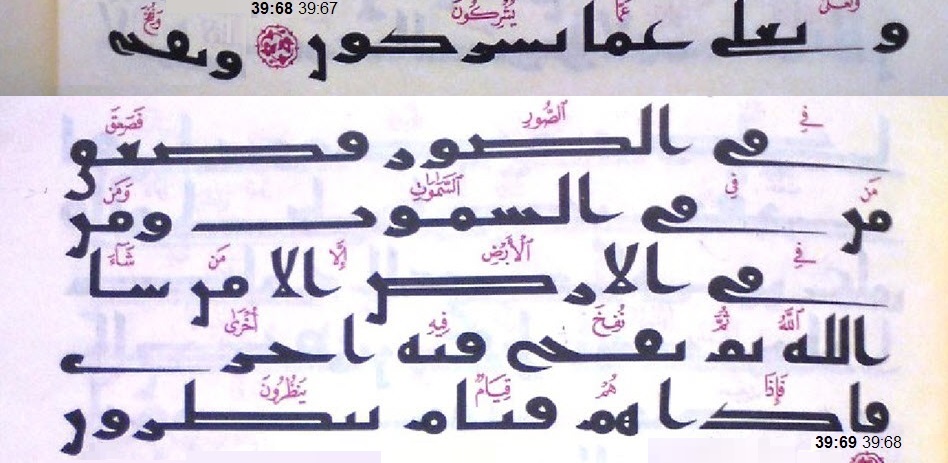 39:68 39:67
وتعلى عما يُشْرِكُونَ وَنُفِخَ
و تعلى عما يشركون ونفخ
فِي ٱلصُّورِ فَصَعِقَ
في الصور فصعق
مَن فِي ٱلسَّمَٰوَٰتِ وَمَن
من في السموت ومن
فِي ٱلْأَرْضِ إِلَّا مَن شَآءَ
في الارض الا من شا
ٱللَّهُ ثُمَّ نُفِخَ فِيهِ أُخْرَىٰ
الله ثم نفخ فيه اخرى
فَإِذَا هُمْ قِيَامٌ يَنظُرُونَ
فاذا هم قيام ينظرون
39:69 39:68